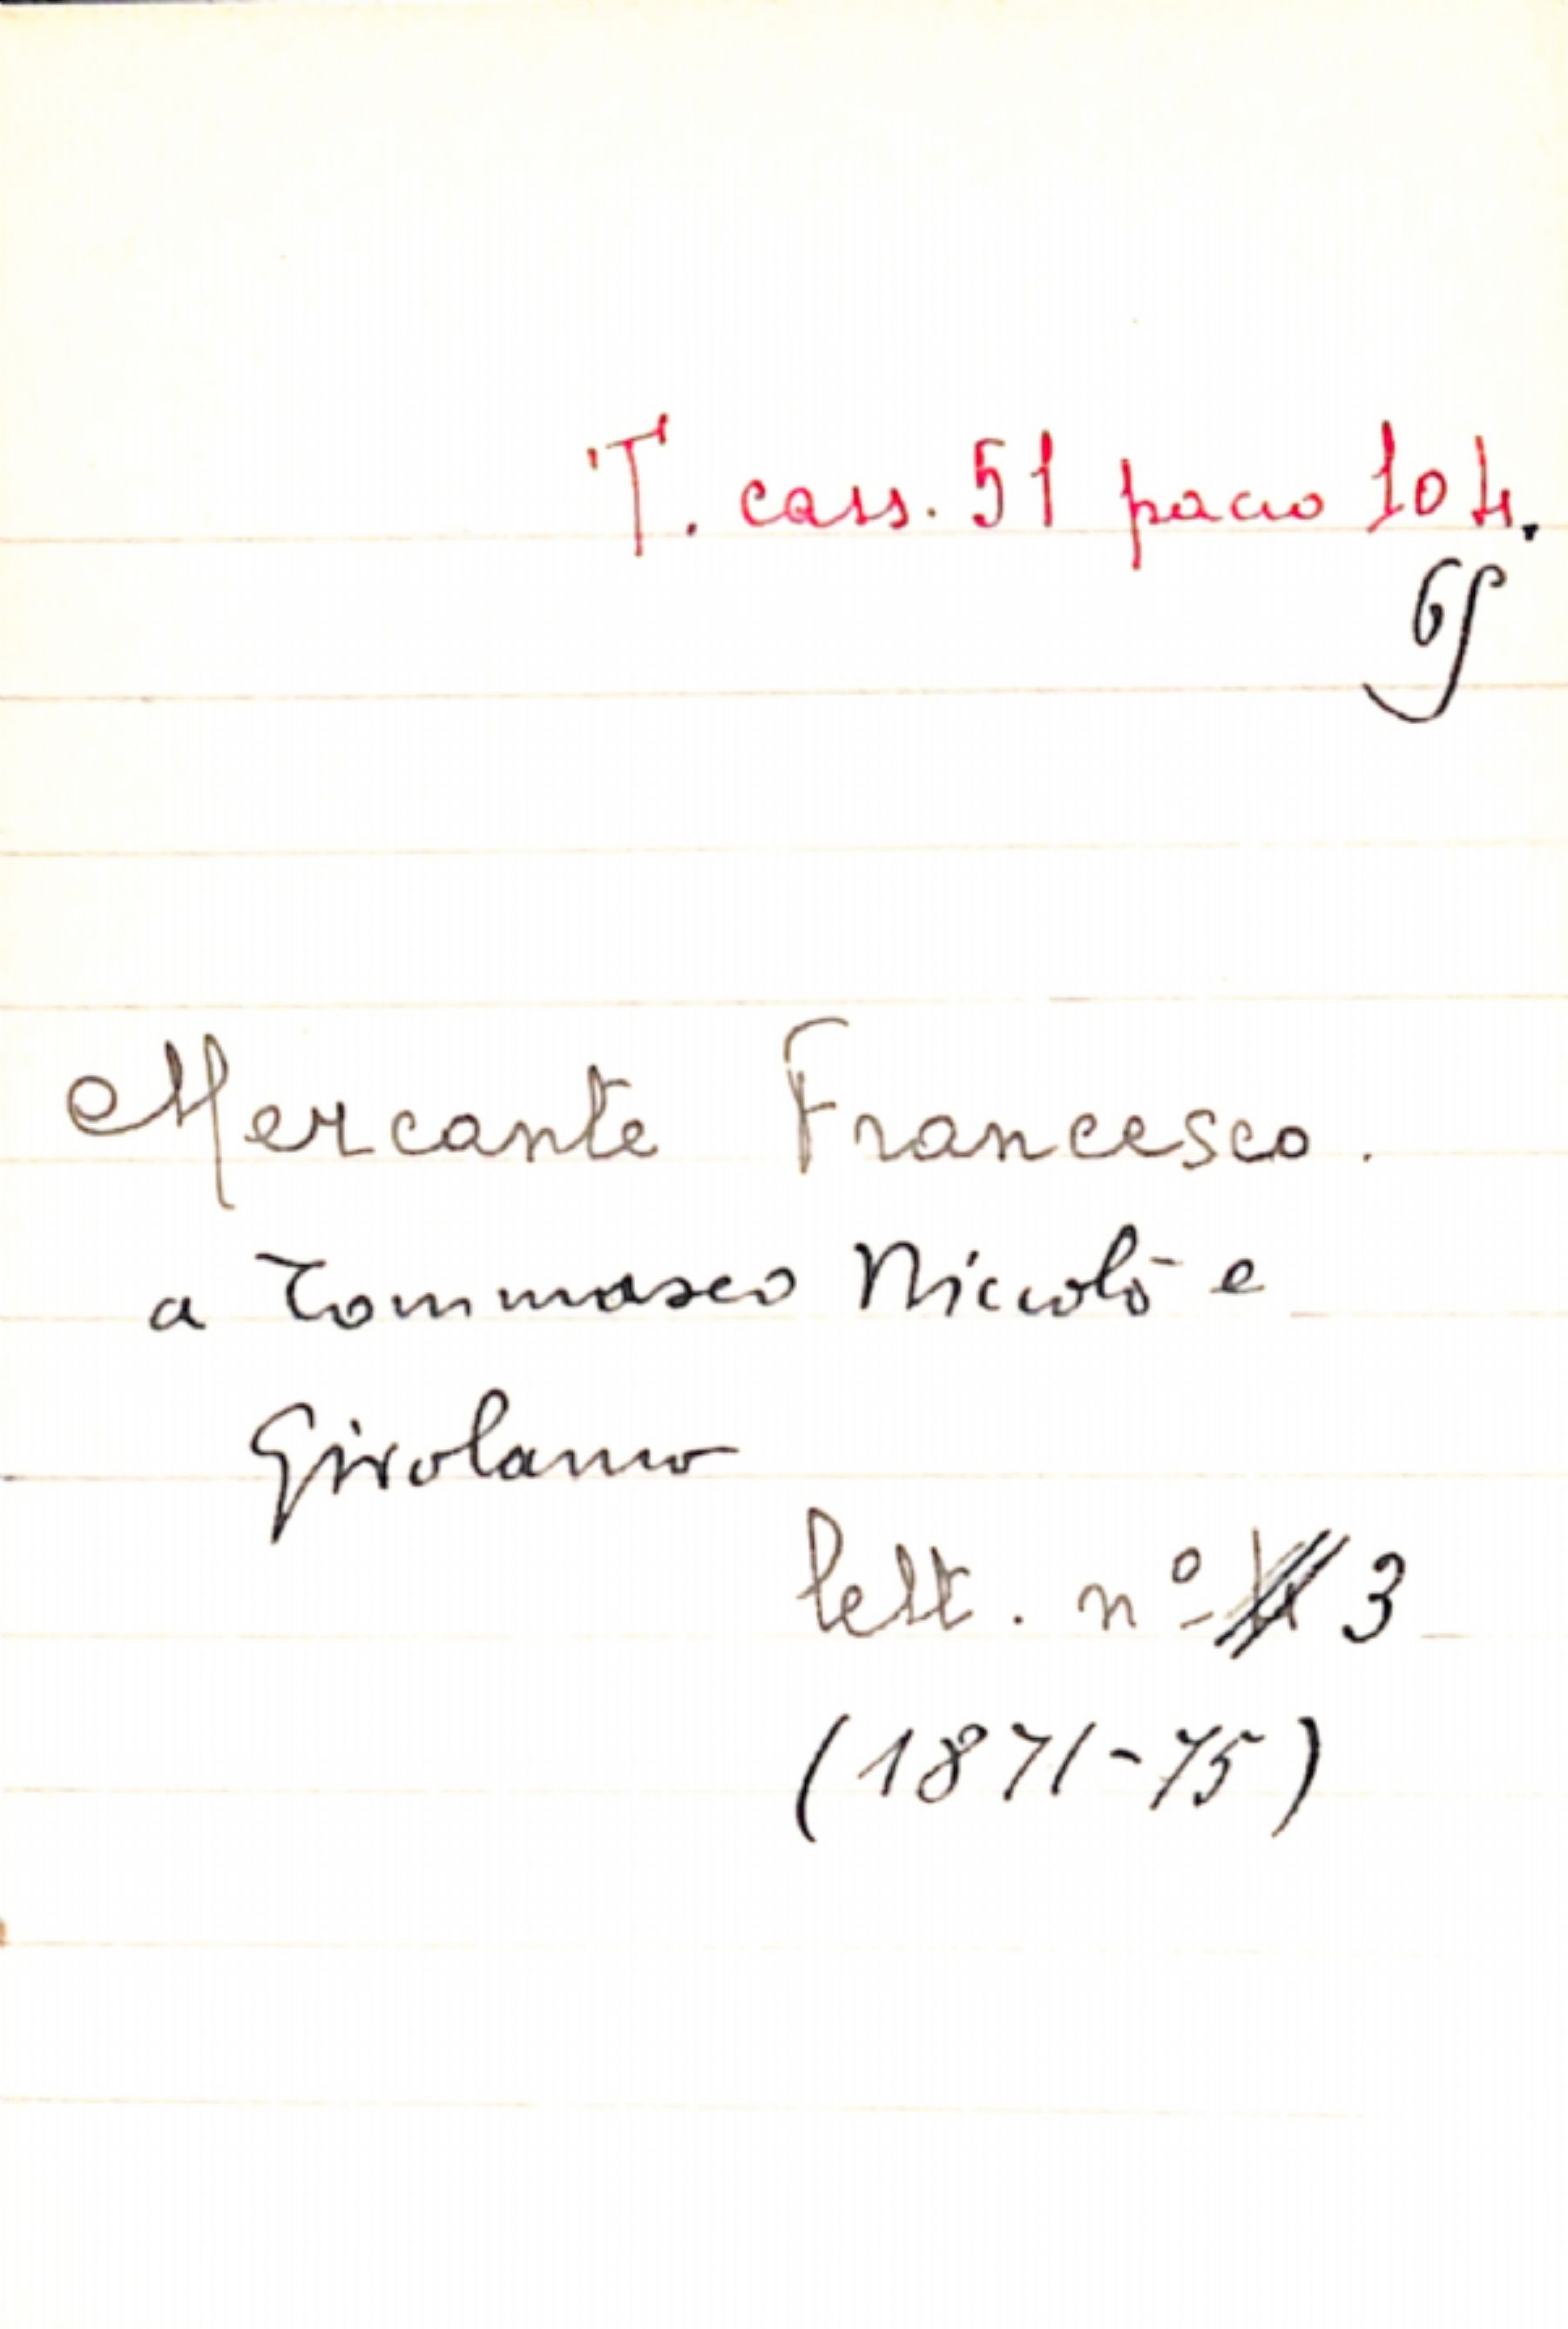 T. cass. 51 pacco 104.
65
Mercante Francesco.
a Tommaseo Niccolò e
Girolamo
lett. nº 3
(1871-75)